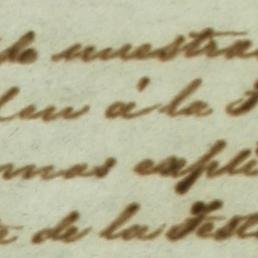 de nuestra
len á la
mas expli
te de la Test